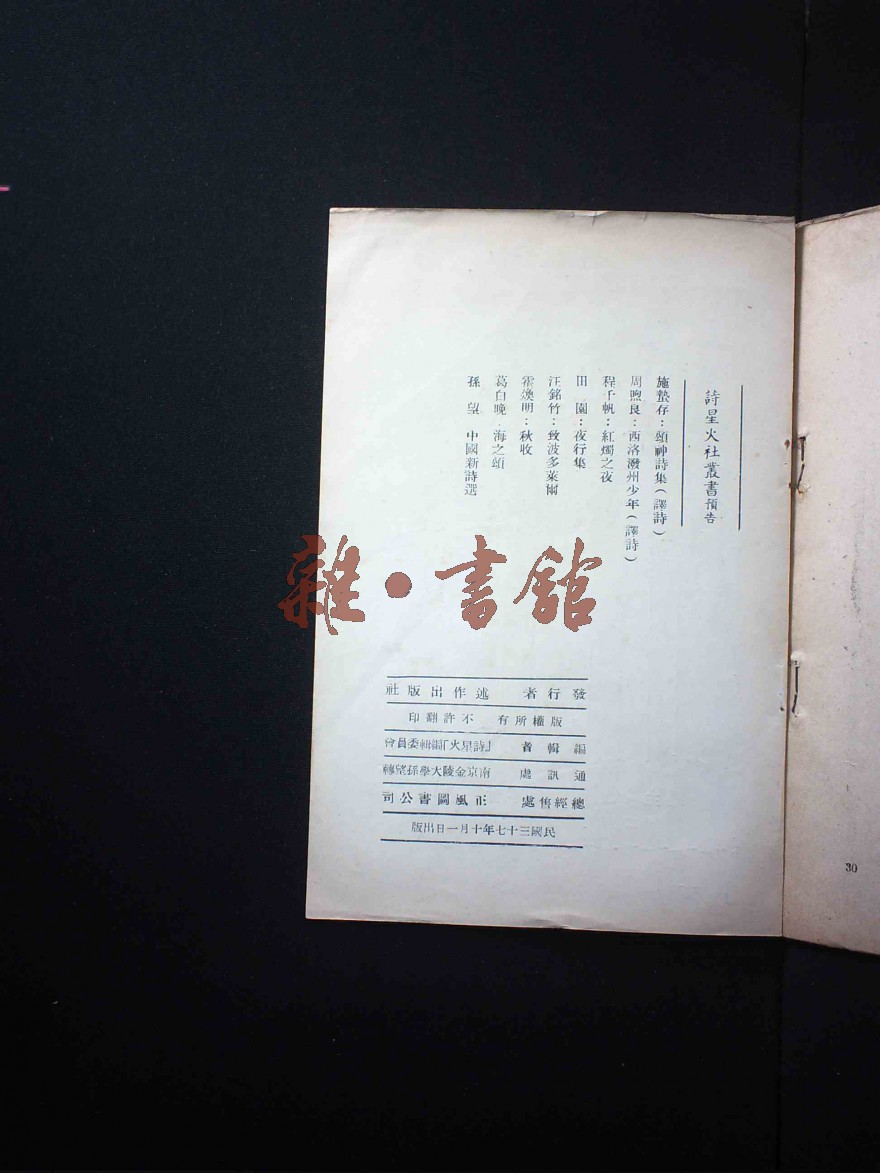 詩星火社叢書預告
施蟄存：頌神詩集（譯詩）
周煦良：西洛潑州少年（譯詩）
程千帆：紅燭之夜
田　園：夜行集
汪銘竹：致波多萊爾
霍煥明：秋收
葛白晚：海之頌
孫　望　中國新詩選
發行者　述作出版社
版權所有　不許翻印
編輯者　「詩星火」編輯委員會
通訊處　南京金陵大學孫望轉
總經售處　正風圖書公司
民國三十七年十月一日出版
雜·書館
30